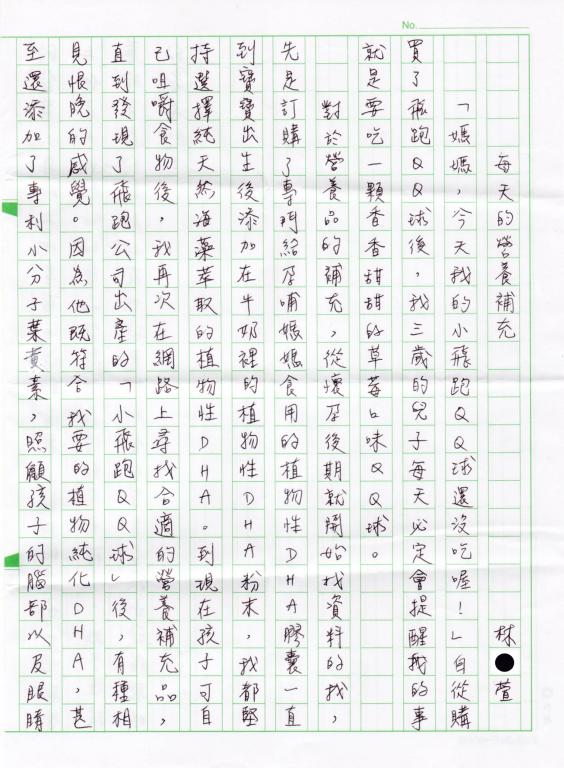 No.
每天的營養補充 林●萱
「媽媽,今天我的小飛跑QQ球還沒吃喔!」自從購
買了飛跑QQ球後,我三歲的兒子每天必定會提醒我的事
就是要吃一顆香香甜甜的草莓口味QQ球。
對於營養品的補充,從懷孕後期就開始找資料的我,
先是訂購了專門給孕哺媽媽食用的植物性DHA膠囊一直
到寶寶出生後添加在牛奶裡的植物性DHA粉末,我都堅
持選擇純天然海藻萃取的植物性DHA。到現在孩子可自
己咀嚼食物後,我再次在網路上尋找合適的營養補充品,
直到發現了飛跑公司出產的「小飛跑QQ球」後,有種相
見恨晚的感覺。因為他既符合我要的植物純化DHA,甚
至還添加了專利小分子葉黃素,照顧孩子的腦部以及眼睛